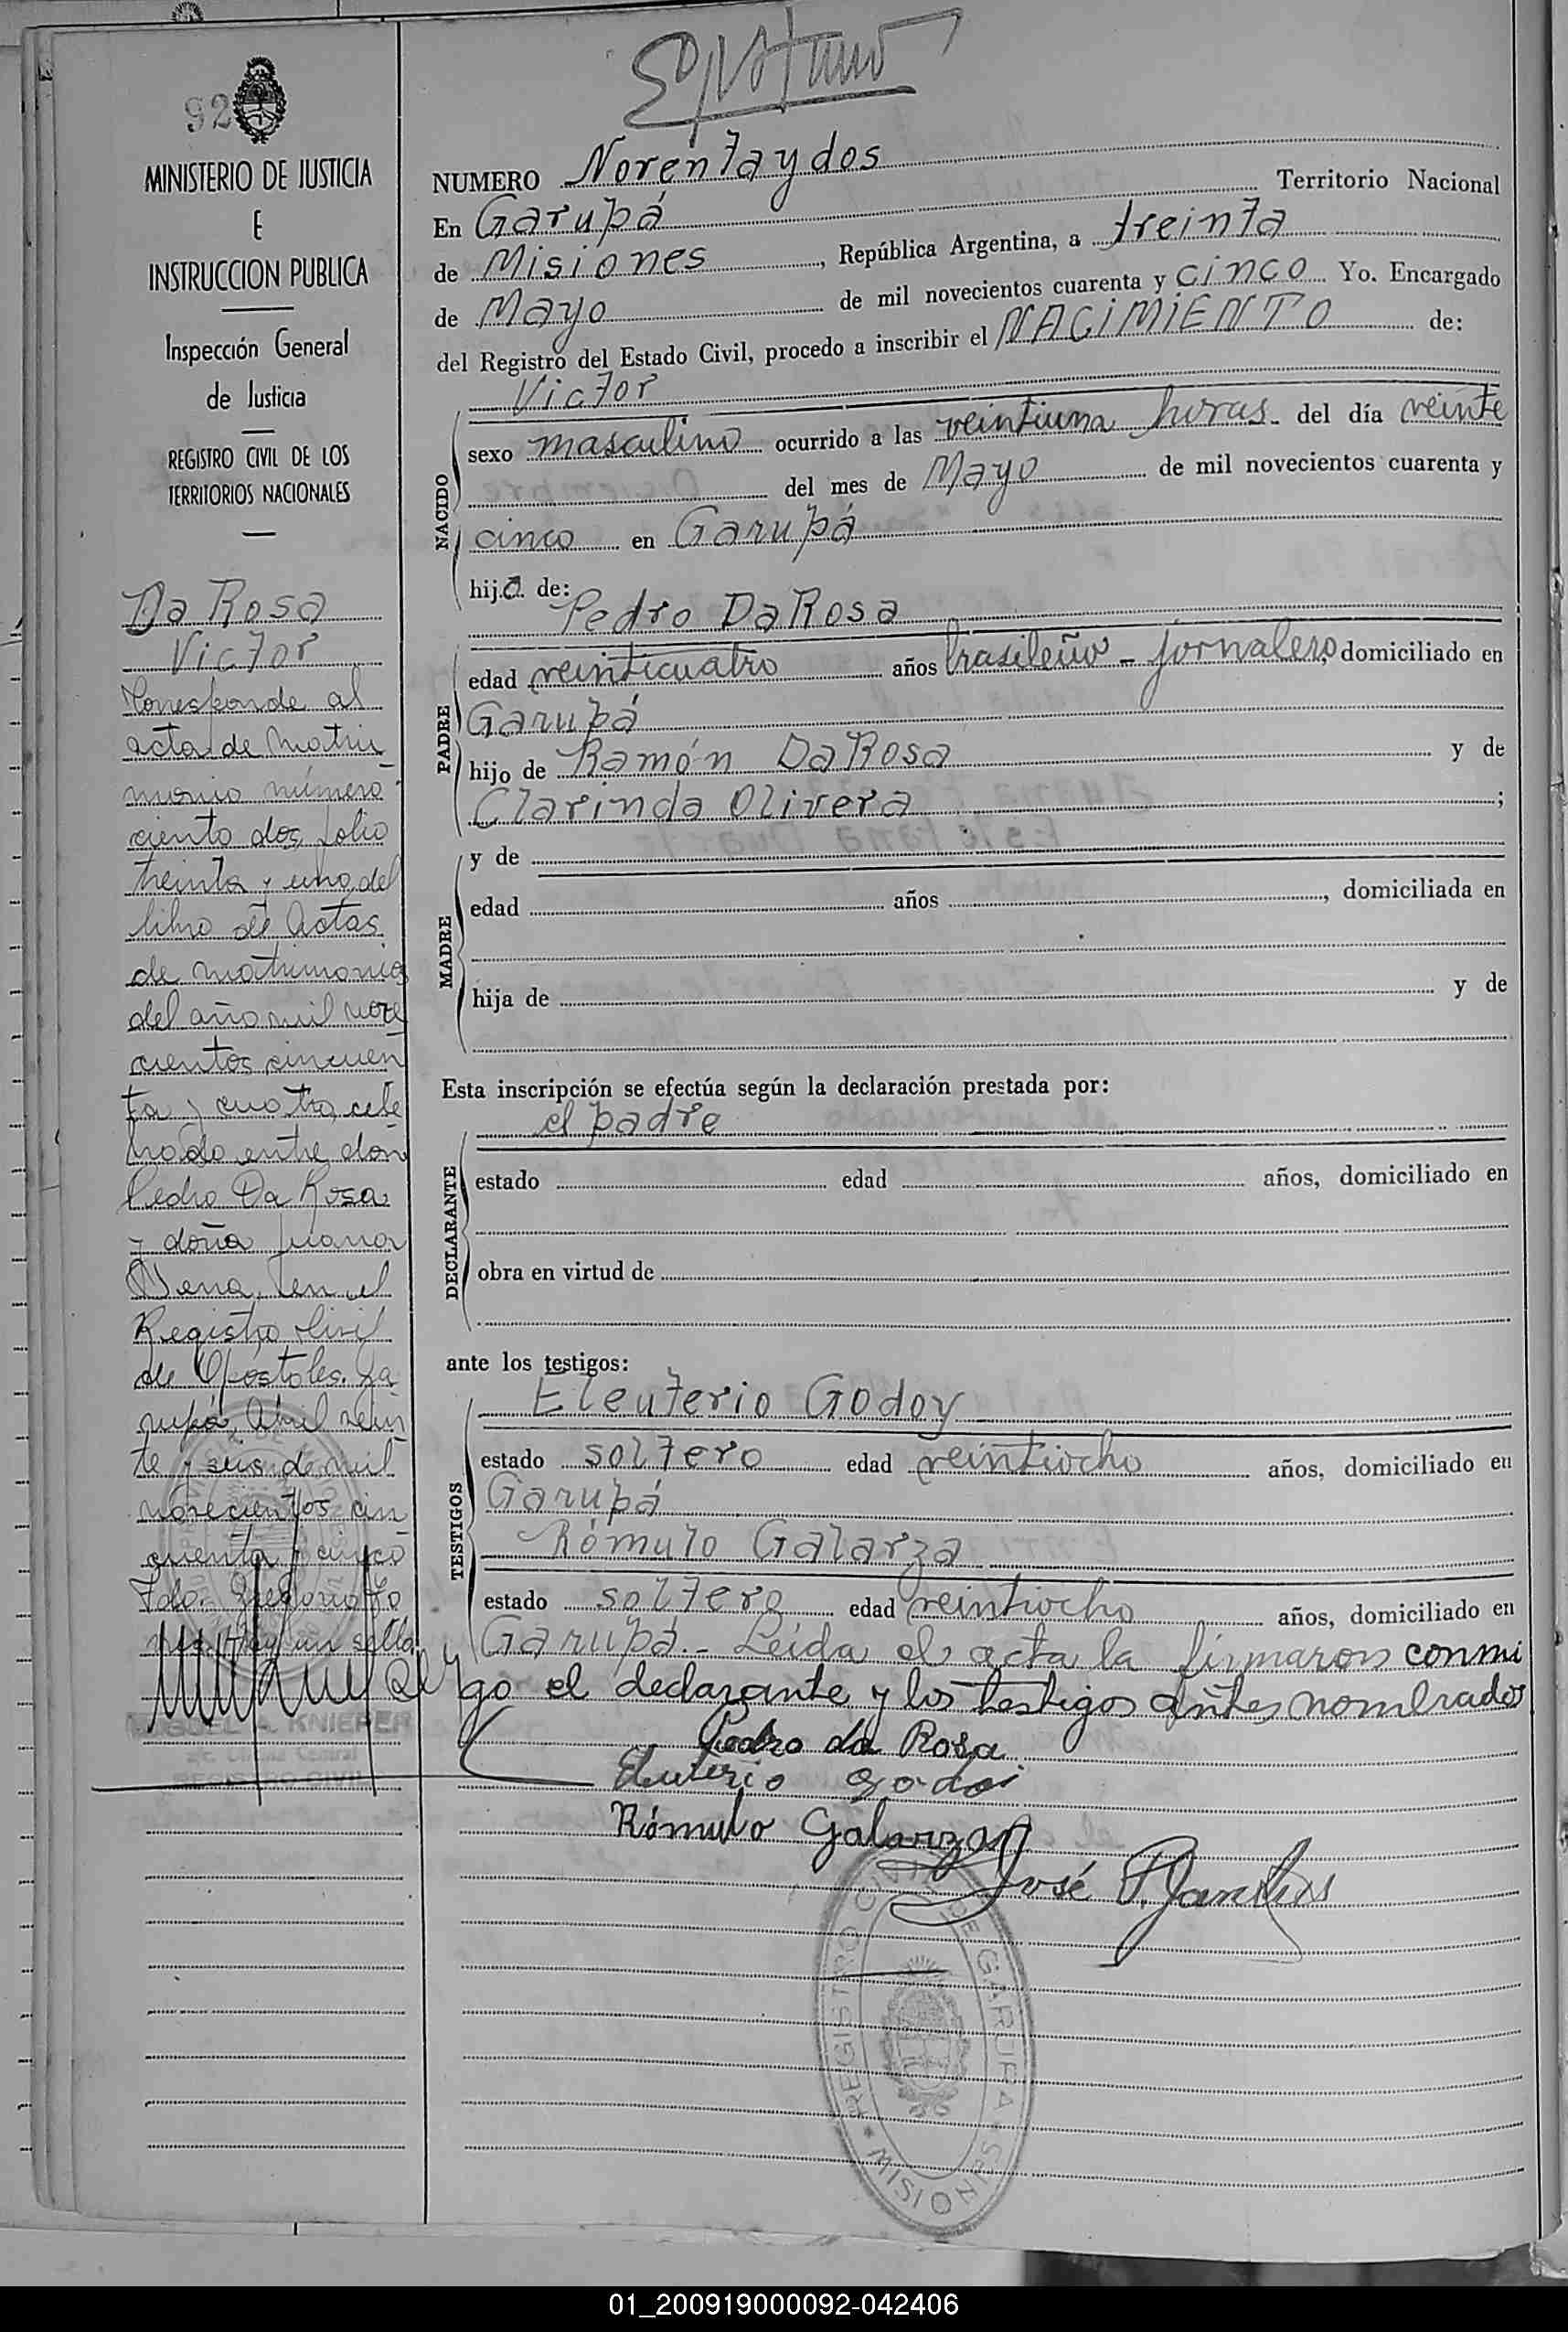 92
MINISTERIO DE JUSTICIA
E
INSTRUCCION PUBLICA
Inspección General
de Justicia
REGISTRO CIVIL DE LOS
TERRITORIOS NACIONALES
Da Rosa
Victor
Corresponde al
acta de matri
monio número
ciento dos, folio
treinta y uno, del
libro de Actas
de matrimonios
del año mil nove
cientos cincuen
ta y cuatro, cele
brado entre don
Pedro Da Rosa
y doña Juana
en el
Registro Civil
de Apóstoles. Ga
rupá, Abril vein
te y seis de mil
novecientos cin
cuenta y cinco
Fdo. Gregorio
Hay un sello
MIGUEL A. KNIEPER
Oficina Central
REGISTRO CIVIL
NUMERO Noventa y dos
En Garupá Territorio Nacional
de Misiones, República Argentina, a treinta
de Mayo de mil novecientos cuarenta y cinco Yo. Encargado
del Registro del Estado Civil, procedo a inscribir el NACIMIENTO de:
Victor
NACIDO
sexo masculino ocurrido a las veintiuna horas del día veinte
del mes de Mayo de mil novecientos cuarenta y
cinco en Garupá
hijo de:
Pedro Da Rosa
PADRE
edad veinticuatro años brasileño - jornalero, domiciliado en
Garupá
hijo de Ramón Da Rosa y de
Clarinda Olivera ;
MADRE
y de
edad años , domiciliada en
hija de y de
Esta inscripción se efectúa según la declaración prestada por:
el padre
DECLARANTE
estado edad años, domiciliado en
obra en virtud de
ante los testigos:
TESTIGOS
Eleuterio Godoy
estado soltero edad veintiocho años, domiciliado en
Garupá
Rómulo Galarza
estado soltero edad veintiocho años, domiciliado en
Garupá.- Leída el acta la firmaron conmi
go el declarante y los testigos antes nombrados
Pedro da Rosa
Eluterio Godoi
Rómulo Galarza
José
REGISTRO CIVIL DE GARUPA * MISIONES
01_200919000092-042406